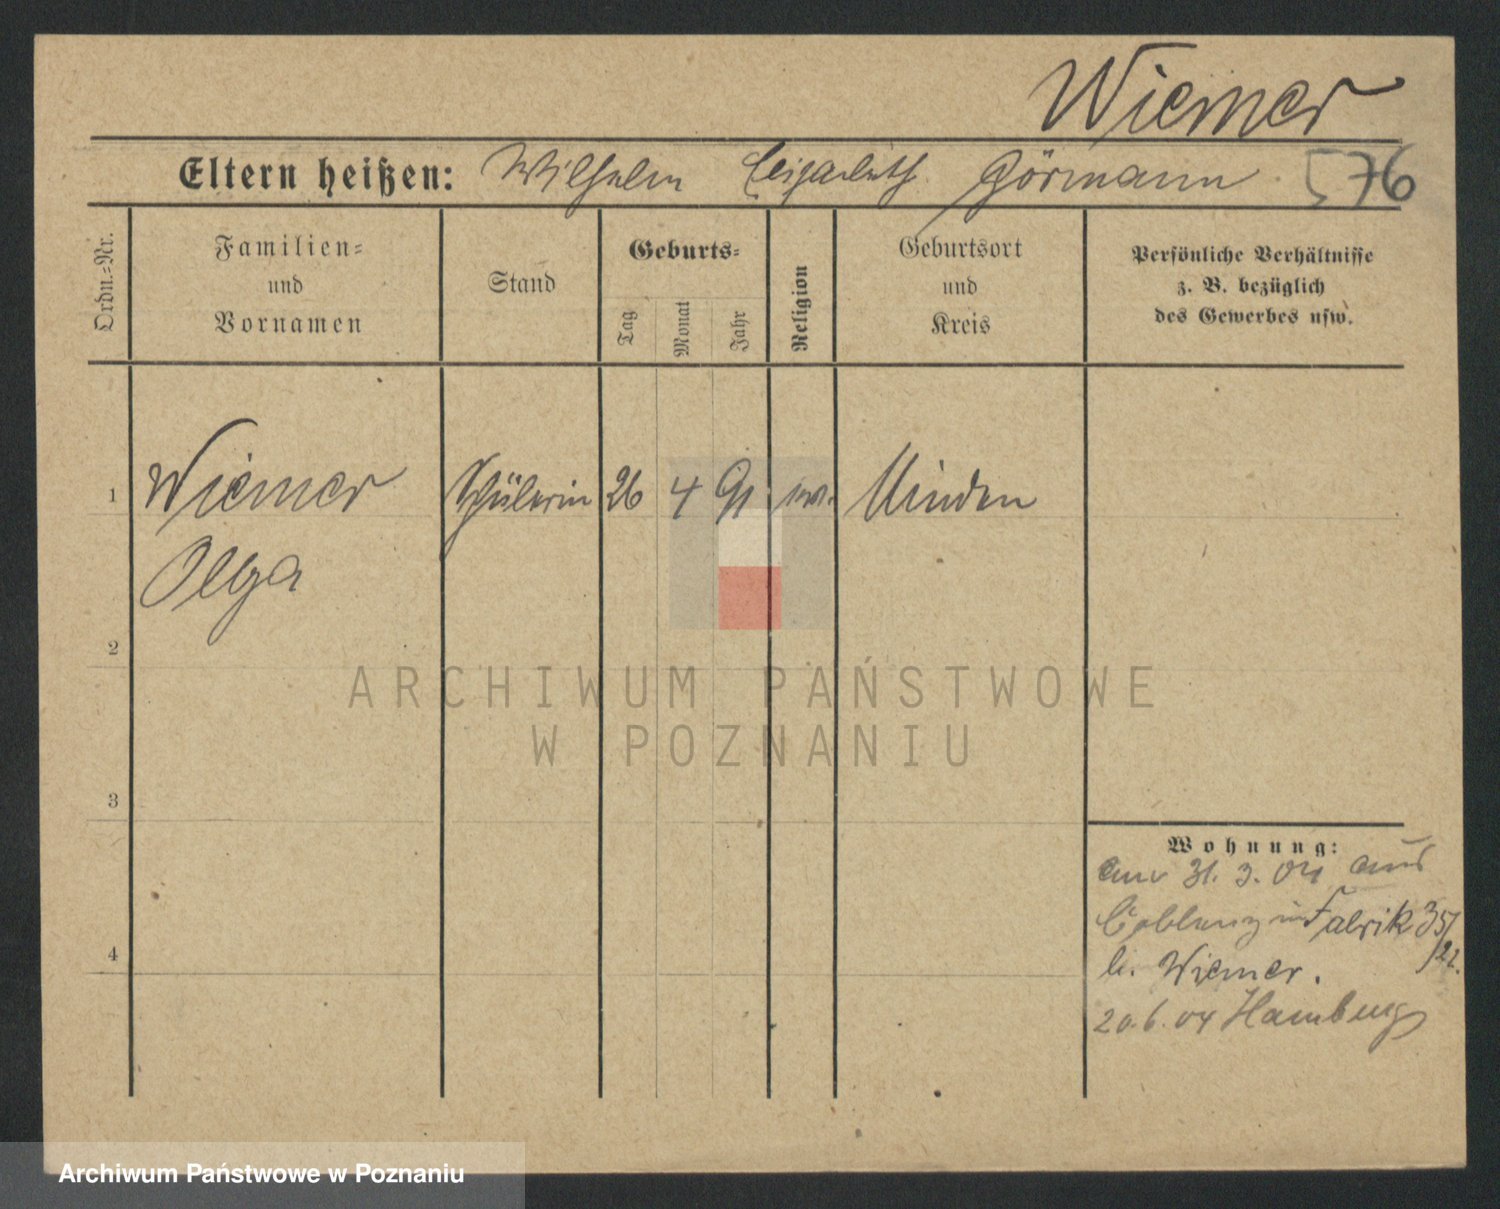 Wiemer
Eltern heißen: Wilhelm Görmann 576
Ordn.=Nr.
Familien=
und
Vornamen
Stand
Geburts=
Tag
Monat
Jahr
Religion
Geburtsort
und
Kreis
Persönliche Verhältnisse
z. B. bezüglich
des Gewerbes usw.
1 Wiemer Schülerin 26 4 91 Minden
Olga
2
3
4
Wohnung:
31. 3. 04 aus
Coblenz in Fabrik 35/
22.
b. Wiemer.
20.6.04 Hamburg
ARCHIWUM PAŃSTWOWE
W POZNANIU
Archiwum Państwowe w Poznaniu